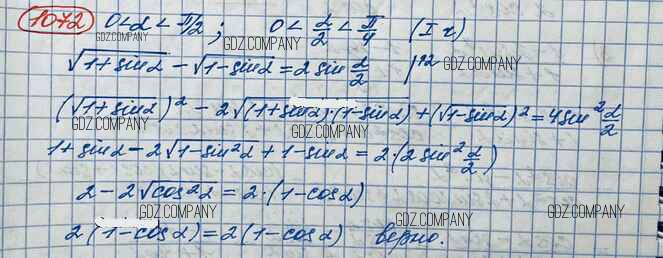 1072 0 < α < π/2 ; 0 < α/2 < π/4 (I ч)
GDZ.COMPANY GDZ.COMPANY
√(1+sinα) − √(1−sinα) = 2 sin α/2 |^2 GDZ.COMPANY
GDZ.COMPANY
(√(1+sinα))² − 2√((1+sinα)·(1−sinα)) + (√(1−sinα))² = 4 sin² α/2
GDZ.COMPANY GDZ.COMPANY
1+sinα − 2√(1−sin²α) + 1−sinα = 2·(2 sin² α/2)
2 − 2√(cos²α) = 2·(1−cosα)
GDZ.COMPANY GDZ.COMPANY GDZ.COMPANY
2(1−cosα) = 2(1−cosα) верно.